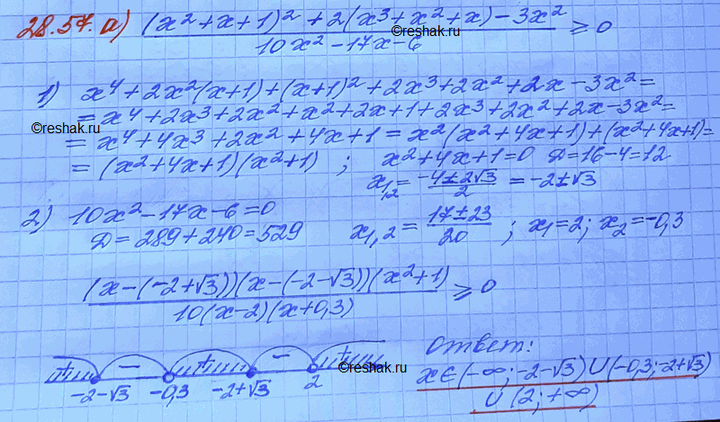 28.57. а) (x² + x + 1)² + 2(x³ + x² + x) - 3x² / 10x² - 17x - 6 ≥ 0
©reshak.ru
1) x⁴ + 2x²(x+1) + (x+1)² + 2x³ + 2x² + 2x - 3x² =
= x⁴ + 2x³ + 2x² + x² + 2x + 1 + 2x³ + 2x² + 2x - 3x² =
©reshak.ru
= x⁴ + 4x³ + 2x² + 4x + 1 = x²(x² + 4x + 1) + (x² + 4x + 1) =
= (x² + 4x + 1)(x² + 1) ; x² + 4x + 1 = 0 Д = 16 - 4 = 12
x₁,₂ = -4 ± 2√3 / 2 = -2 ± √3
2) 10x² - 17x - 6 = 0
Д = 289 + 240 = 529 x₁,₂ = 17 ± 23 / 20 ; x₁ = 2; x₂ = -0,3
(x - (-2+√3))(x - (-2-√3))(x² + 1) / 10(x - 2)(x + 0,3) ≥ 0
©reshak.ru
+ - + - +
-2-√3 -0,3 -2+√3 2
Ответ:
x ∈ (-∞; -2-√3) U (-0,3; -2+√3)
U (2; +∞)